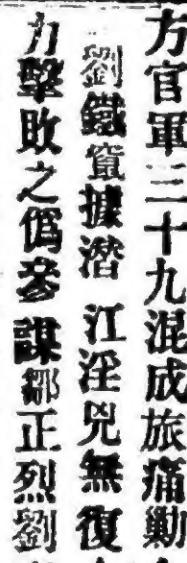 方官軍三十九混成旅痛勦
劉鐵竄據潛江淫兇無復
力擊敗之僞參謀鄒正烈劉